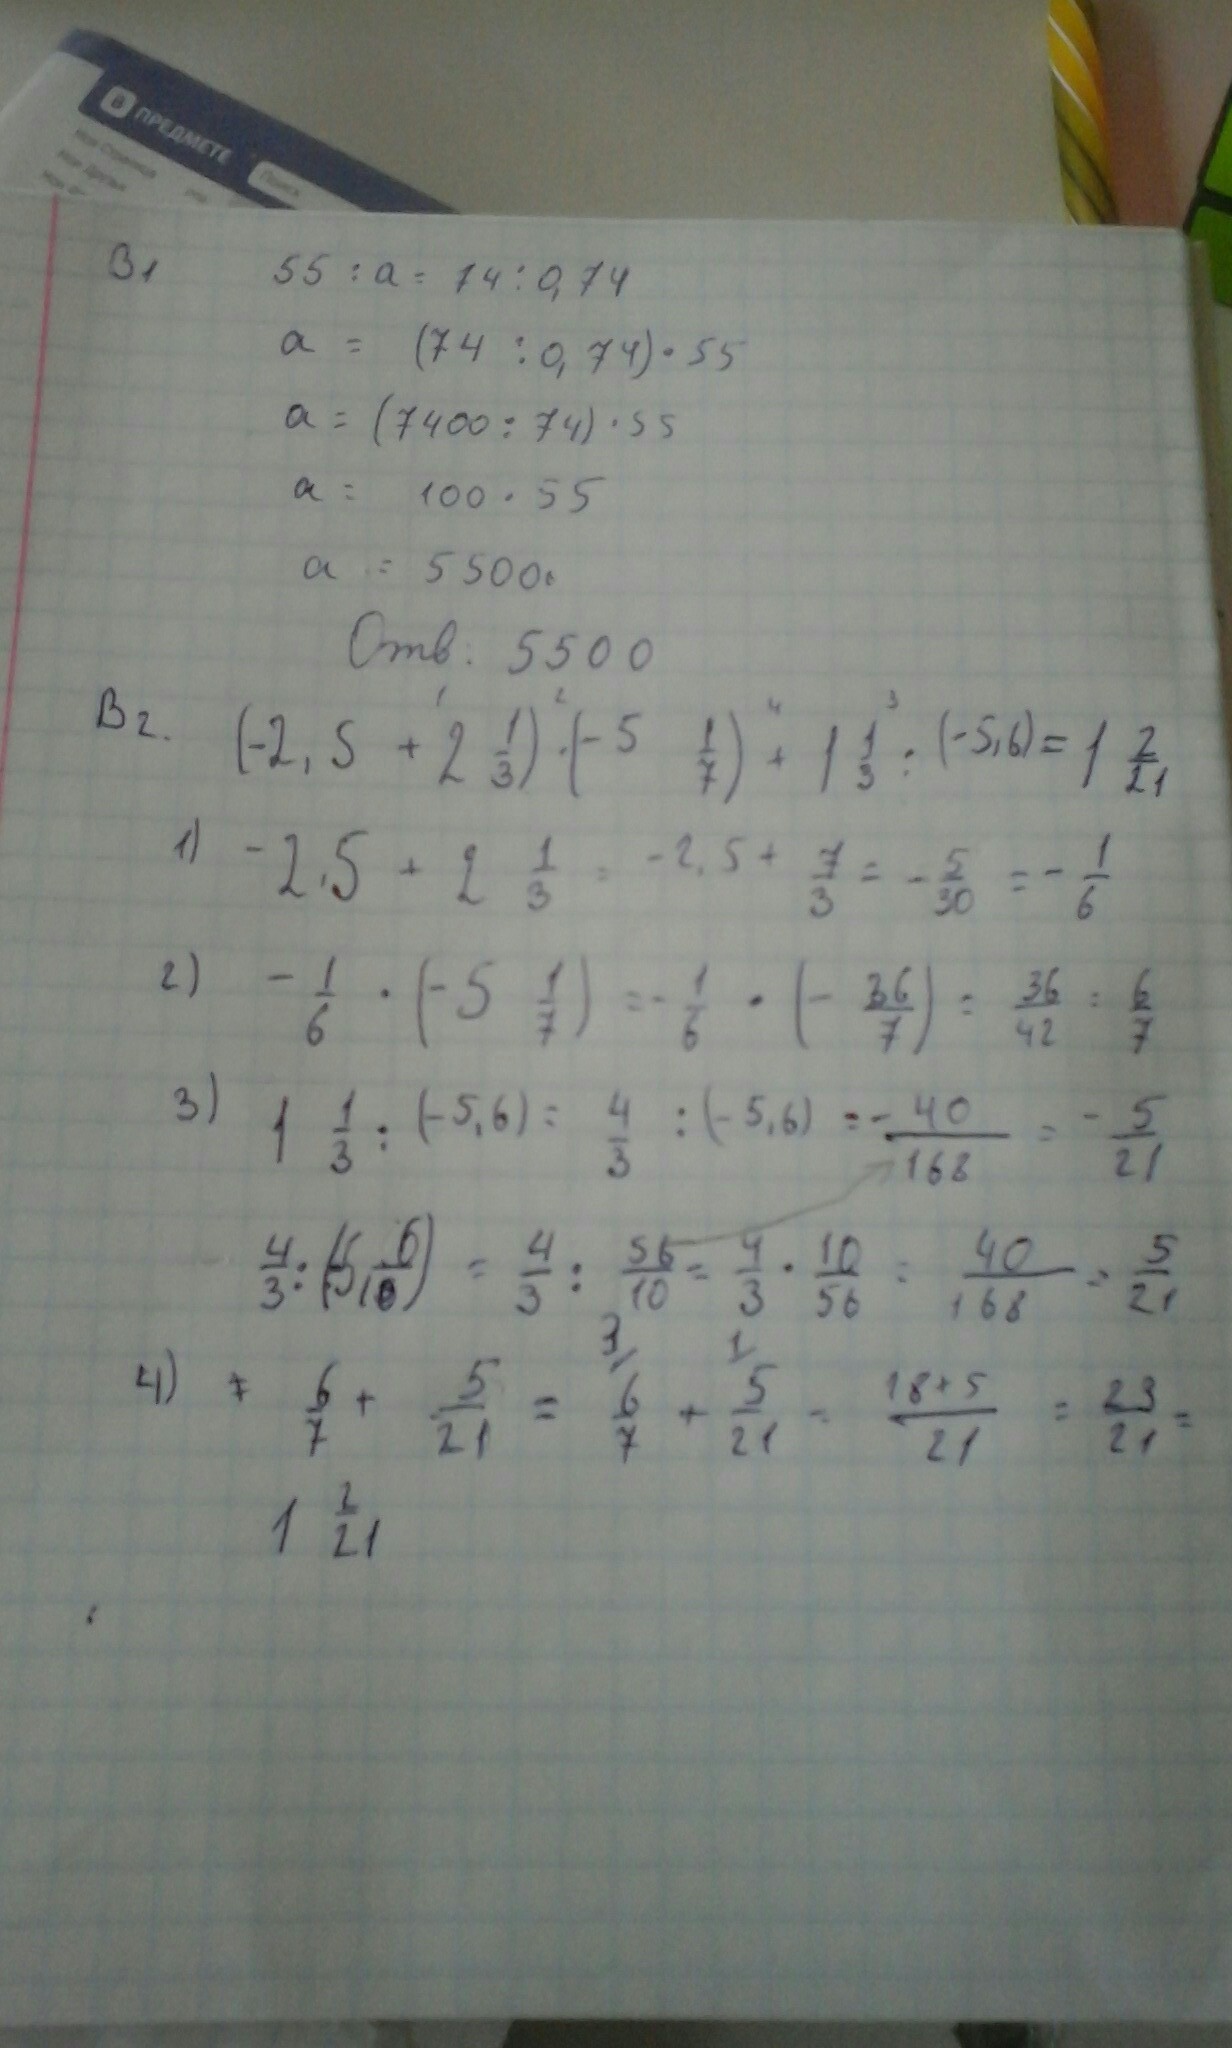 В ПРЕДМЕТЕ
Поиск
Моя Страница
Мои Друзья
В1 55 : a = 74 : 0,74
a = (74 : 0,74) · 55
a = (7400 : 74) · 55
a = 100 · 55
a = 5500.
Отв: 5500
1 2 4 3
В2. (-2,5 + 2 1/3) · (-5 1/7) + 1 1/3 : (-5,6) = 1 2/21
1) -2,5 + 2 1/3 = -2,5 + 7/3 = - 5/30 = - 1/6
2) - 1/6 · (-5 1/7) = - 1/6 · (- 36/7) = 36/42 = 6/7
3) 1 1/3 : (-5,6) = 4/3 : (-5,6) = - 40/168 = - 5/21
4/3 : = 4/3 : 56/10 = 4/3 · 10/56 = 40/168 = 5/21
3/ 1/
4) 6/7 + 5/21 = 6/7 + 5/21 = 18+5/21 = 23/21 =
1 2/21